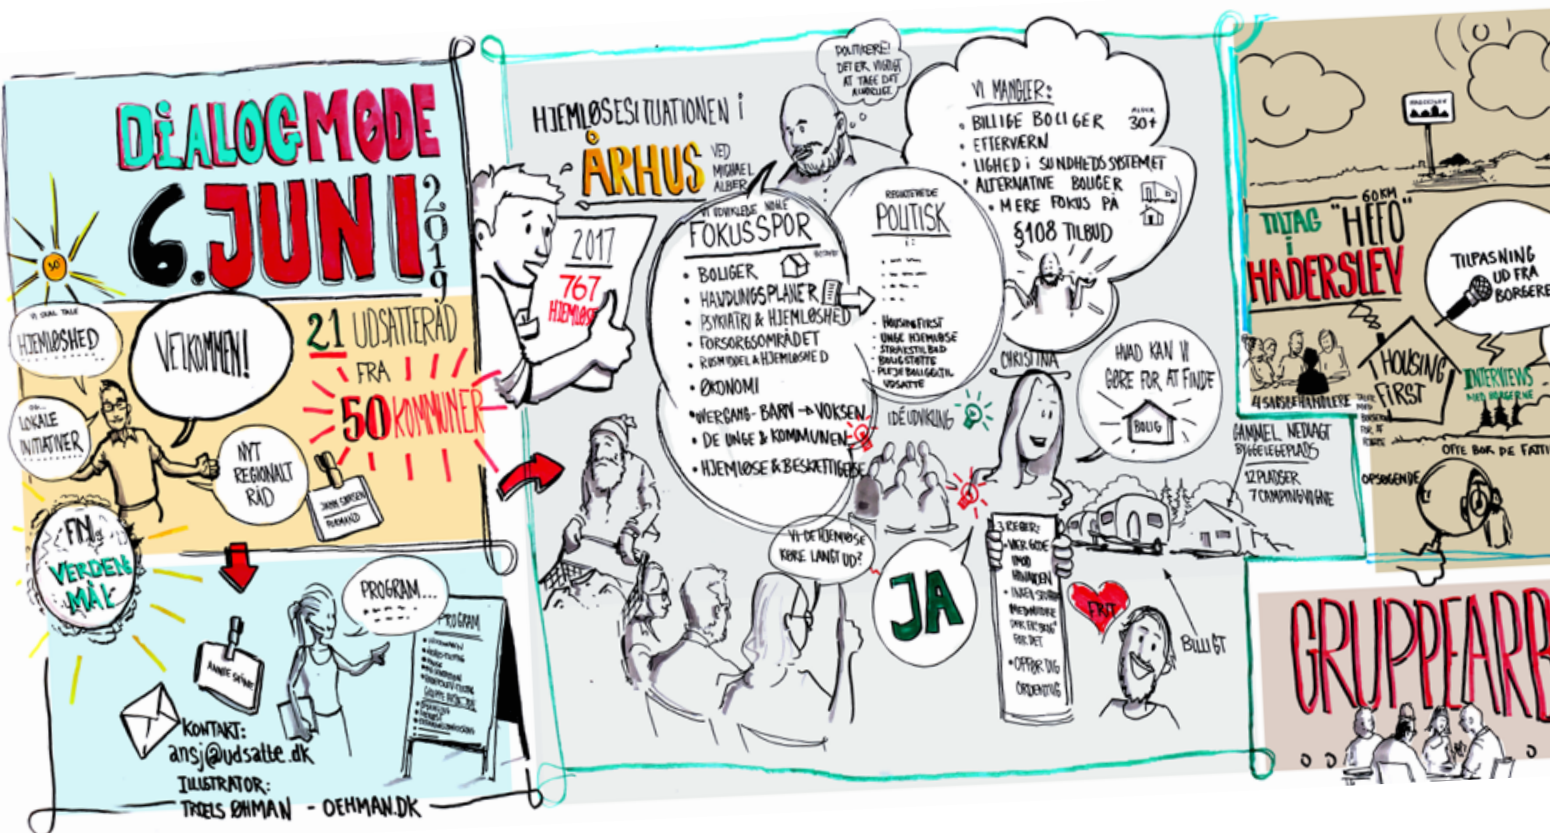 DIALOGMØDE
6. JUNI
2019
30
VI SKAL TALE
HJEMLØSHED
VELKOMMEN!
OG...
LOKALE
INITIATIVER
NYT
REGIONALT
RÅD
21 UDSATTERÅD
FRA
50 KOMMUNER
FORMAND
FN's
VERDENS
MÅL
PROGRAM...
PROGRAM
KONTAKT:
ansj@udsatte.dk
ILLUSTRATOR:
TROELS ØHMAN - OEHMAN.DK
HJEMLØSESITUATIONEN i
ÅRHUS
VED
MICHAEL
ALBER
2017
767
HJEMLØSE
POLITIKERE!
DET ER VIGTIGT
AT TAGE DET
ALVORLIGT
VI UDVIKLEDE NOGLE
FOKUSSPOR
• BOLIGER
• HANDLUNGSPLANER
• PSYKIATRI & HJEMLØSHED
• FORSORGSOMRÅDET
• RUSMIDDEL & HJEMLØSHED
• ØKONOMI
• OVERGANG - BARN → VOKSEN
• DE UNGE & KOMMUNEN
• HJEMLØSE & BESKÆFTIGELSE
RESULTEREDE
POLITISK
i:
• HOUSING FIRST
• UNGE HJEMLØSE
• STRAKSTILBUD
• BOLIGSTØTTE
• PLEJEBOLIGER TIL
UDSATTE
VI MANGLER:
• BILLIGE BOLIGER
30+
• EFTERVÆRN
• LIGHED i SUNDHEDSSYSTEMET
• ALTERNATIVE BOLIGER
• MERE FOKUS PÅ
§108 TILBUD
IDÉUDVIKLING
CHRISTINA
HVAD KAN VI
GØRE FOR AT FINDE
BOLIG
VI DE HJEMLØSE
KØRE LANGT UD?
JA
3 REGLER:
• VÆR GODE
MOD
HINANDEN
• OPFØR DIG
ORDENTLIG
FRIT
BILLIGT
GAMMEL NEDLAGT
BYGGELEGEPLADS
12 PLADSER
7 CAMPINGVOGNE
HADERSLEV
60 KM
TILTAG "HEFO"
i
HADERSLEV
TILPASNING
UD FRA
BORGERE
HOUSING
FIRST
INTERVIEWS
MED BORGERNE
4 SAGSBEHANDLERE
OFTE BOR DE FATTI
OPSØGENDE
GRUPPEARB